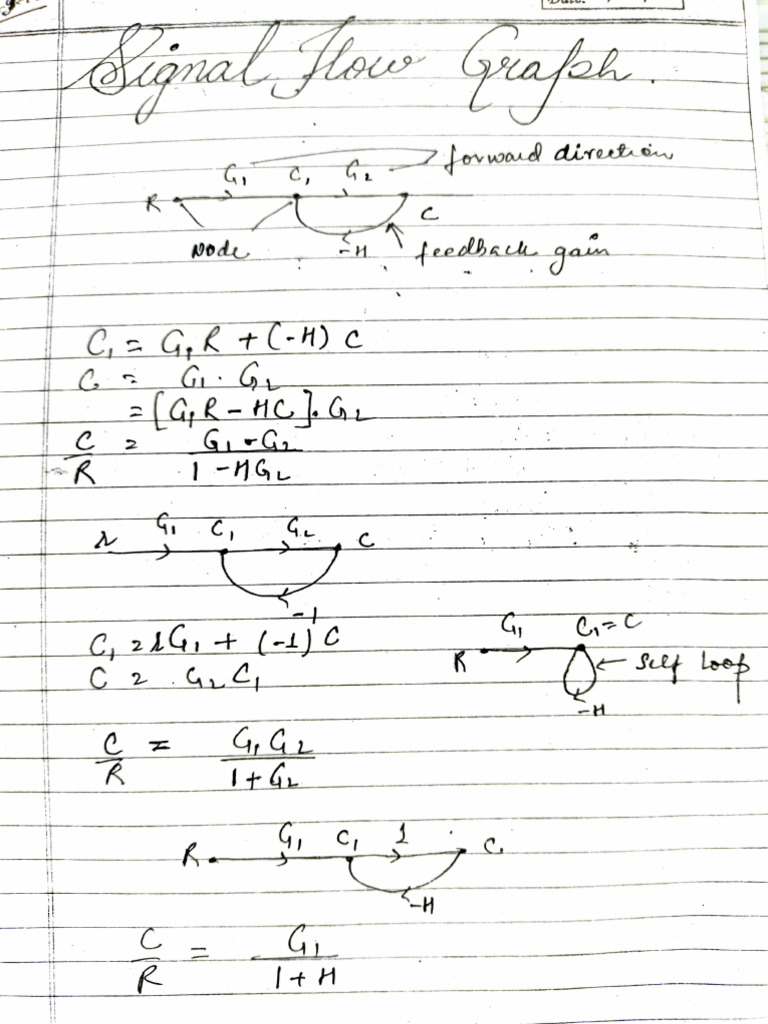 Date:
Signal Flow Graph.
G₁ C₁ G₂ forward direction
R C
Node -H feedback gain
C₁ = G₁R + (-H) C
C = G₁ . G₂
= [G₁R - HC] . G₂
C/R = G₁ - G₂ / 1 - HG₂
r G₁ C₁ G₂ C
-1
C₁ = rG₁ + (-1) C
C = G₂ C₁
G₁ C₁ = C
R Self Loop
-H
C/R = G₁ G₂ / 1 + G₂
R G₁ C₁ 1 C
-H
C/R = G₁ / 1 + H